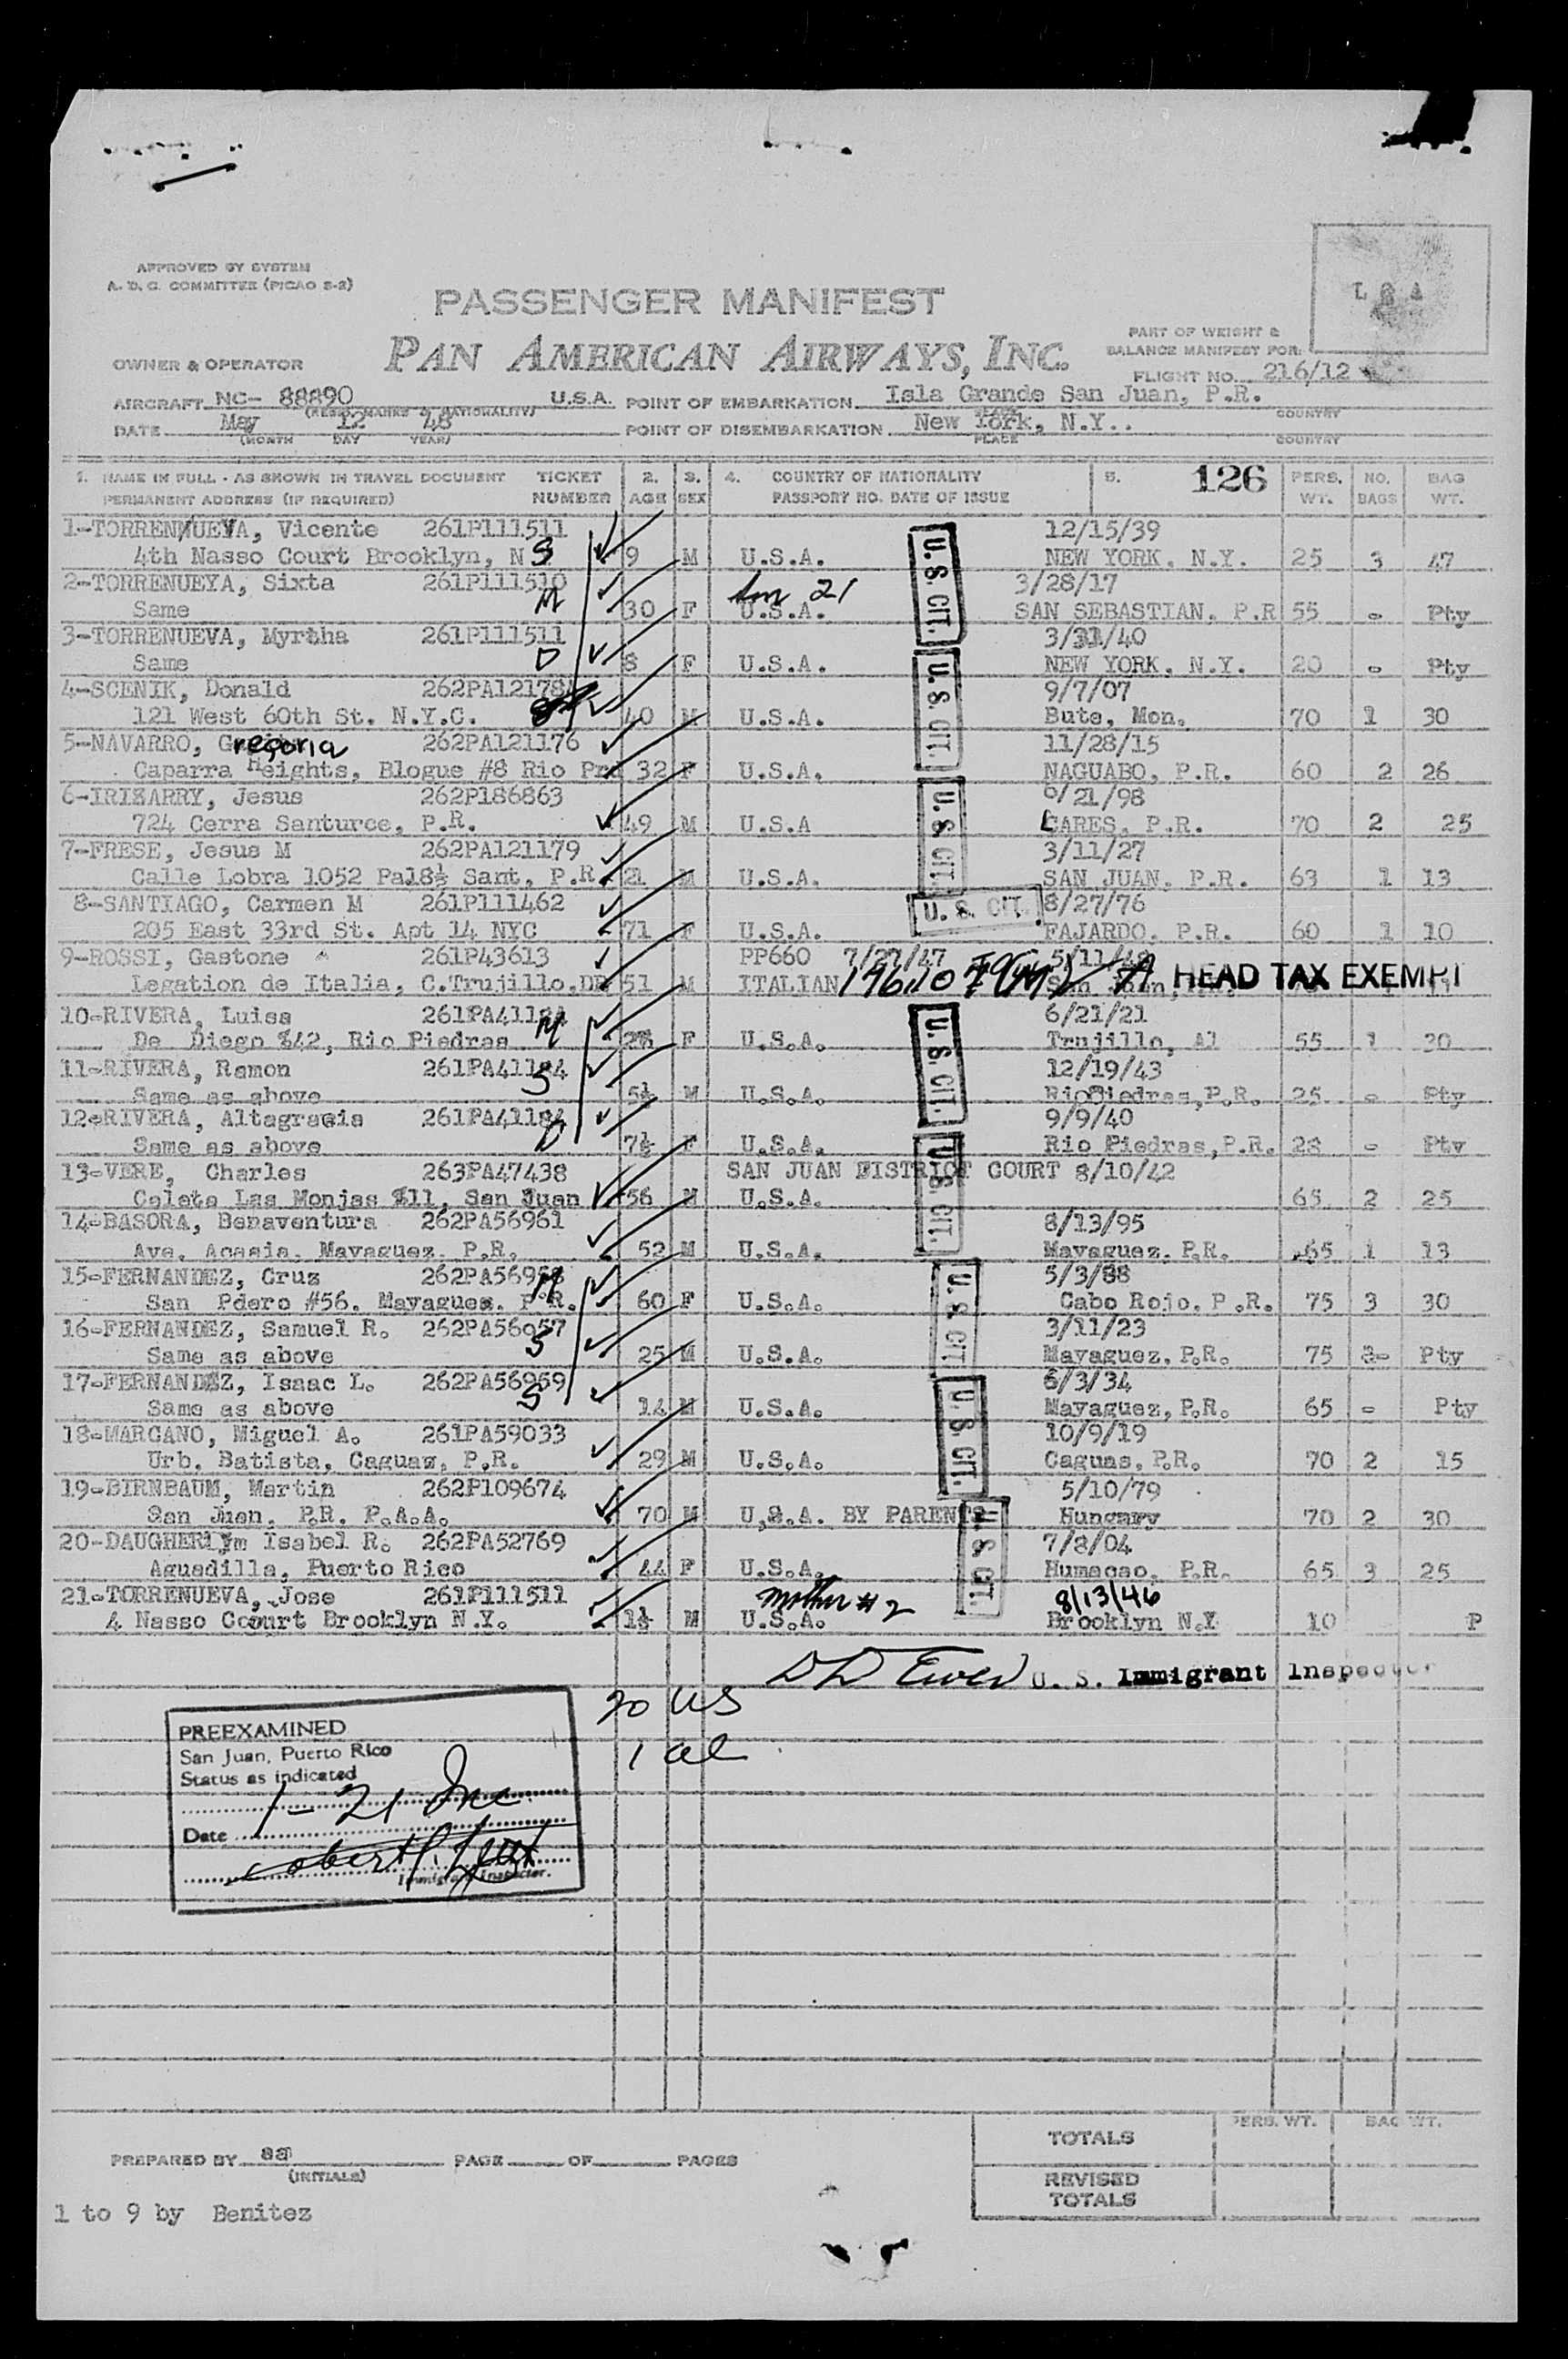 APPROVED BY SYSTEM
A. D. C. COMMITTEE (PICAO S-2)
PASSENGER MANIFEST
L G A
PART OF WEIGHT &
BALANCE MANIFEST FOR:
OWNER & OPERATOR PAN AMERICAN AIRWAYS, INC.
FLIGHT NO. 216/12
AIRCRAFT NC- 88890 U.S.A. POINT OF EMBARKATION Isla Grande San Juan, P.R.
(REGIS. MARKS & NATIONALITY) PLACE COUNTRY
DATE May 12 48 POINT OF DISEMBARKATION New York, N.Y..
(MONTH DAY YEAR) PLACE COUNTRY
1. NAME IN FULL - AS SHOWN IN TRAVEL DOCUMENT TICKET 2. 3. 4. COUNTRY OF NATIONALITY 5. 126 PERS. NO. BAG
PERMANENT ADDRESS (IF REQUIRED) NUMBER AGE SEX PASSPORT NO. DATE OF ISSUE WT. BAGS WT.
1-TORRENUEVA, Vicente 261P111511 12/15/39
4th Nasso Court Brooklyn, N S 9 M U.S.A. U.S. CIT. NEW YORK, N.Y. 25 3 47
2-TORRENUEYA, Sixta 261P111510 3/28/17
Same M 30 F U.S.A. SAN SEBASTIAN, P.R 55 - Pty
3-TORRENUEVA, Myrtha 261P111511 3/31/40
Same D 8 F U.S.A. U.S. CIT. NEW YORK, N.Y. 20 - Pty
4-SCENIK, Donald 262PA12178 9/7/07
121 West 60th St. N.Y.C. 40 M U.S.A. Bute, Mon. 70 1 30
5-NAVARRO, Gregoria 262PA121176 11/28/15
Caparra Heights, Blogue #8 Rio Prd 32 F U.S.A. NAGUABO, P.R. 60 2 26
6-IRIZARRY, Jesus 262P186863 /21/98
724 Cerra Santurce, P.R. 49 M U.S.A U.S. CIT. LARES, P.R. 70 2 25
7-FRESE, Jesus M 262PA121179 3/11/27
Calle Lobra 1052 Pa18½ Sant, P.R. 21 M U.S.A. SAN JUAN, P.R. 63 1 13
8-SANTIAGO, Carmen M 261P111462 U. S. CIT. 8/27/76
205 East 33rd St. Apt 14 NYC 71 F U.S.A. FAJARDO, P.R. 60 1 10
9-ROSSI, Gastone 261P43613 PP660 7/27/47 5/11/
Legation de Italia, C.Trujillo,DR 51 M ITALIAN HEAD TAX EXEMPT
10-RIVERA, Luisa 261PA41184 6/21/21
De Diego 142, Rio Piedras M F U.S.A. U.S. CIT. Trujillo, Al 55 1 30
11-RIVERA, Ramon 261PA41184 12/19/43
Same as above S 5½ M U.S.A. Rio Piedras, P.R. 25 - Pty
12-RIVERA, Altagracia 261PA41184 9/9/40
Same as above D 7½ F U.S.A. U.S. CIT. Rio Piedras, P.R. 28 - Pty
13-VERE, Charles 263PA47438 SAN JUAN DISTRICT COURT 8/10/42
Caleta Las Monjas #11, San Juan 56 M U.S.A. 65 2 25
14-BASORA, Benaventura 262PA56961 8/13/95
Ave. Acacia. Mayaguez. P.R. 52 M U.S.A. Mayaguez. P.R. 65 1 13
15-FERNANDEZ, Cruz 262PA56958 M 5/3/88
San Pdero #56. Mayaguez. P.R. 60 F U.S.A. U.S. CIT Cabo Rojo, P.R. 75 3 30
16-FERNANDEZ, Samuel R. 262PA56957 3/11/23
Same as above S 25 M U.S.A. Mayaguez, P.R. 75 3- Pty
17-FERNANDEZ, Isaac L. 262PA56959 6/3/34
Same as above S 14 M U.S.A. U.S. CIT. Mayaguez, P.R. 65 - Pty
18-MARCANO, Miguel A. 261PA59033 10/9/19
Urb. Batista, Caguas, P.R. 29 M U.S.A. Caguas, P.R. 70 2 15
19-BIRNBAUM, Martin 262P109674 5/10/79
San Juan. P.R. P.A.A. 70 M U.S.A. BY PARENTS Hungary 70 2 30
20-DAUGHERTY Isabel R. 262PA52769 7/8/04
Aguadilla, Puerto Rico 44 F U.S.A. U.S. CIT. Humacao, P.R. 65 3 25
21-TORRENUEVA, Jose 261P111511 mother #2 8/13/46
4 Nasso Court Brooklyn N.Y. 1½ M U.S.A. Brooklyn N.Y 10 P
U. S. Immigrant Inspector
20 US
1 al
PREEXAMINED
San Juan, Puerto Rico
Status as indicated
1 - 21 Inc
Date
Immigrant Inspector.
TOTALS PERS. WT. BAG WT.
PREPARED BY aa PAGE OF PAGES
(INITIALS)
REVISED
TOTALS
1 to 9 by Benitez